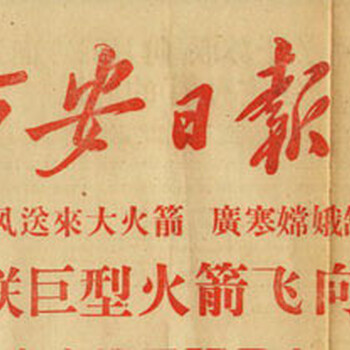 西安日報
风送來大火箭 廣寒嫦娥
联巨型火箭飞向